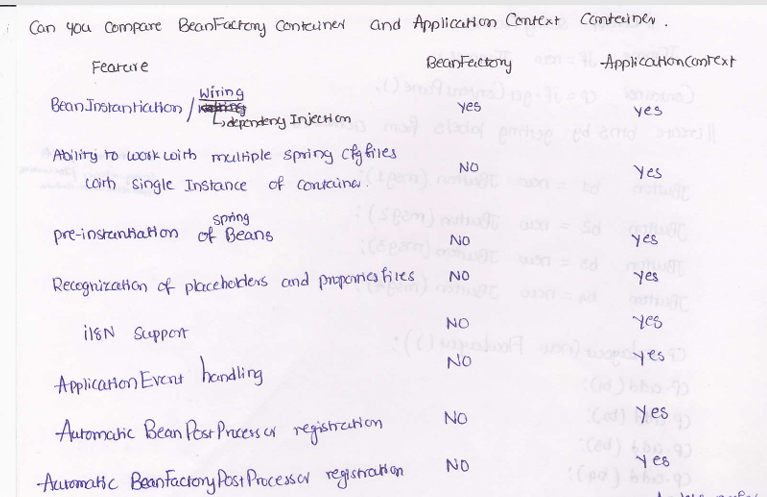 Can you Compare BeanFactory Container and Application Context Container.
Feature BeanFactory ApplicationContext
Bean Instantiation / Wiring yes yes
↳ dependency Injection
Ability to work with multiple spring cfg files
with single Instance of container. NO Yes
pre-instantiation of spring Beans NO yes
Recognization of placeholders and properties files NO yes
i18N Support NO yes
Application Event handling NO yes
Automatic BeanPostProcessor registration NO yes
Automatic BeanFactoryPostProcessor registration NO yes